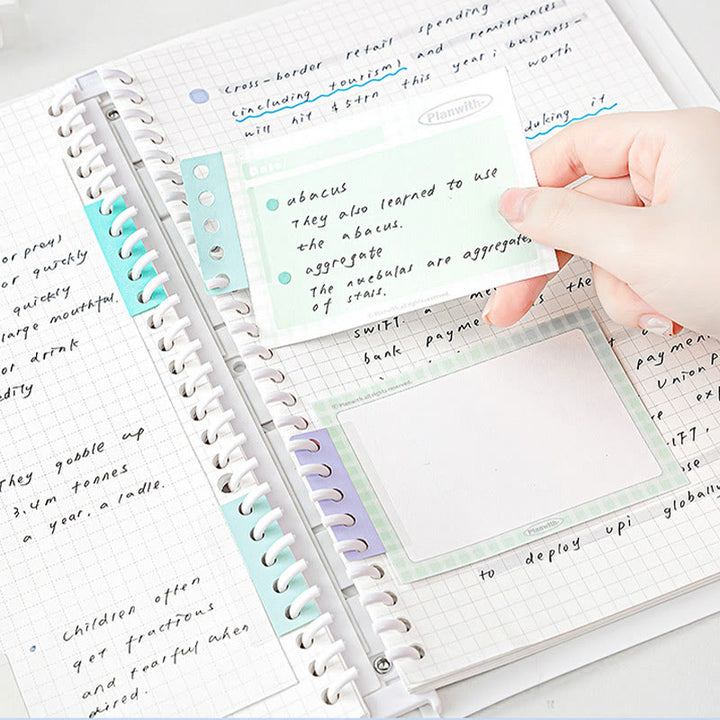 or pray)
or quickly
quickly
large mouthful.
or drink
edily
They gobble up
3.4m tonnes
a year, a ladle.
Children often
get fractious
and tearful when
cross-border retail spending
(including tourism) and remittances
will hit $5trn this year; business-
worth
duking it
Planwith-
abacus
They also learned to use
the abacus.
aggregate
The nuebulas are aggregates
of stars.
© Planwith. all rights reserved.
SWIFT. a me
the
bank payme
payment
Union p
© Planwith. all rights reserved.
re exp
IFT,
se
Planwith-
to deploy upi globally